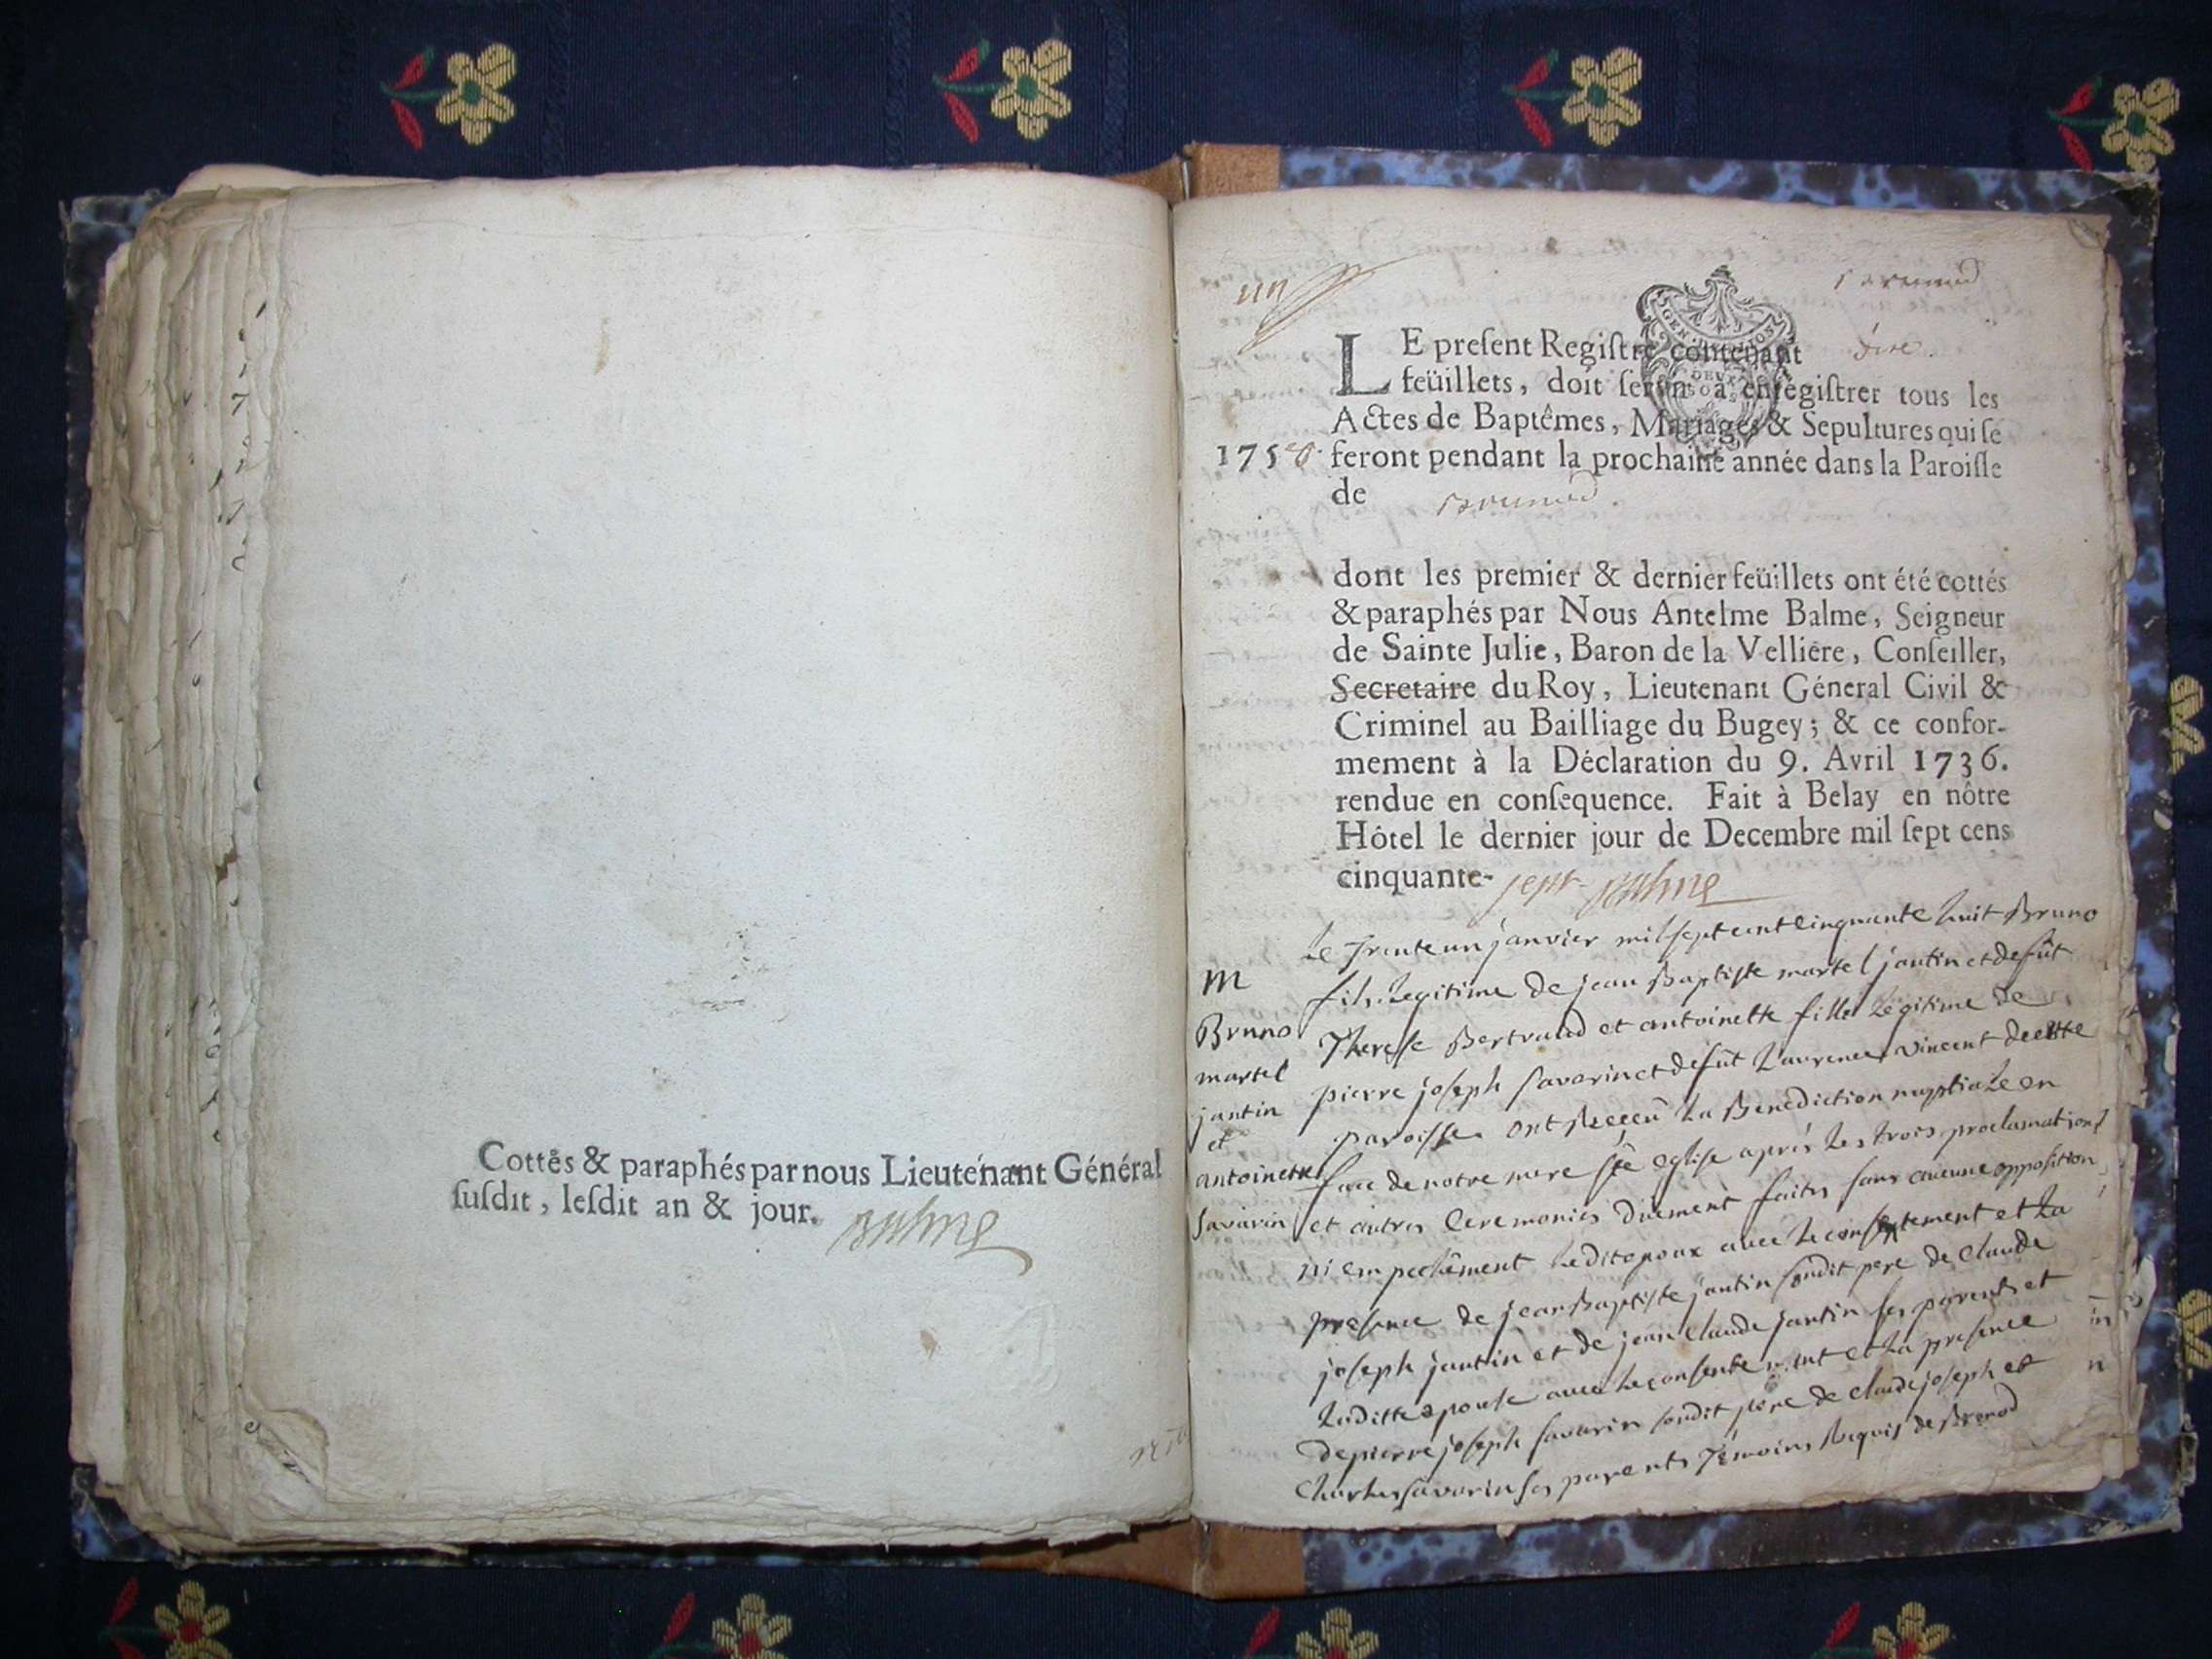 Cottés & paraphés par nous Lieutenant Général
susdit, lesdit an & jour.
Balme
un
Brenod
LE present Registre contenant
dix
feüillets, doit servir à enregistrer tous les
Actes de Baptêmes, Mariages & Sepultures qui se
1758. feront pendant la prochaine année dans la Paroisse
de Brenod.
dont les premier & dernier feüillets ont été cottés
& paraphés par Nous Antelme Balme, Seigneur
de Sainte Julie, Baron de la Velliére, Conseiller,
Secretaire du Roy, Lieutenant Géneral Civil &
Criminel au Bailliage du Bugey; & ce confor-
mement à la Déclaration du 9. Avril 1736.
rendue en consequence. Fait à Belay en nôtre
Hôtel le dernier jour de Decembre mil sept cens
cinquante-sept Balme
M
Bruno
martel
jantin
et
antoinette
Savarin
Le Trente un janvier mil sept cent cinquante huit Bruno
fils Legitime de jean Baptiste martel jantin et defût
Therese Bertrand et antoinette fille Legitime de
pierre joseph Savarin et defût Laurence Vincent de cette
paroisse ont Receeû La Benediction nuptiale en
face de notre mere Ste eglise aprés Les trois proclamations
et autres Ceremonies düement faites sans aucune opposition
ni empechement Ledit epoux avec Le consentement et La
presence de jean Baptiste jantin sondit pere de Claude
joseph jantin et de jean Claude jantin ses parents et
Laditte epouse avec Le consentement et La presence
de pierre joseph Savarin sondit pere de Claude joseph et
Charles Savarin ses parents Témoins Requis de Brenod